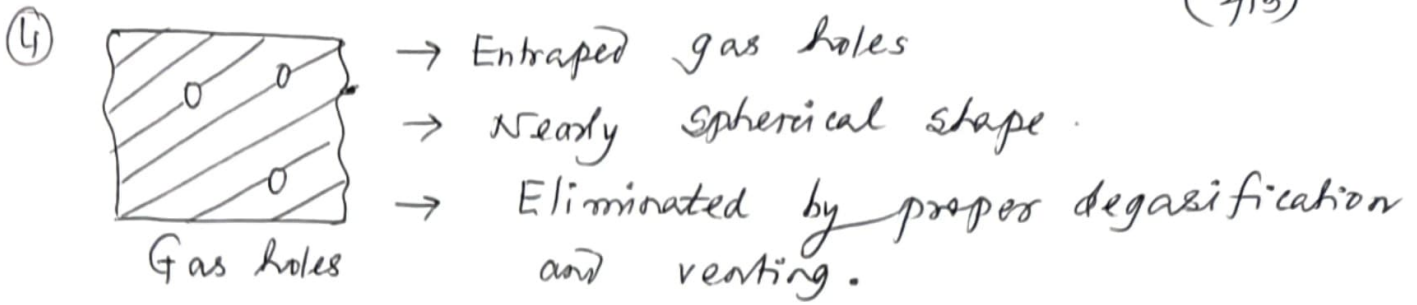 ④ → Entraped gas holes
→ Nearly Sphercical shape.
→ Eliminated by proper degasification
Gas holes and venting.